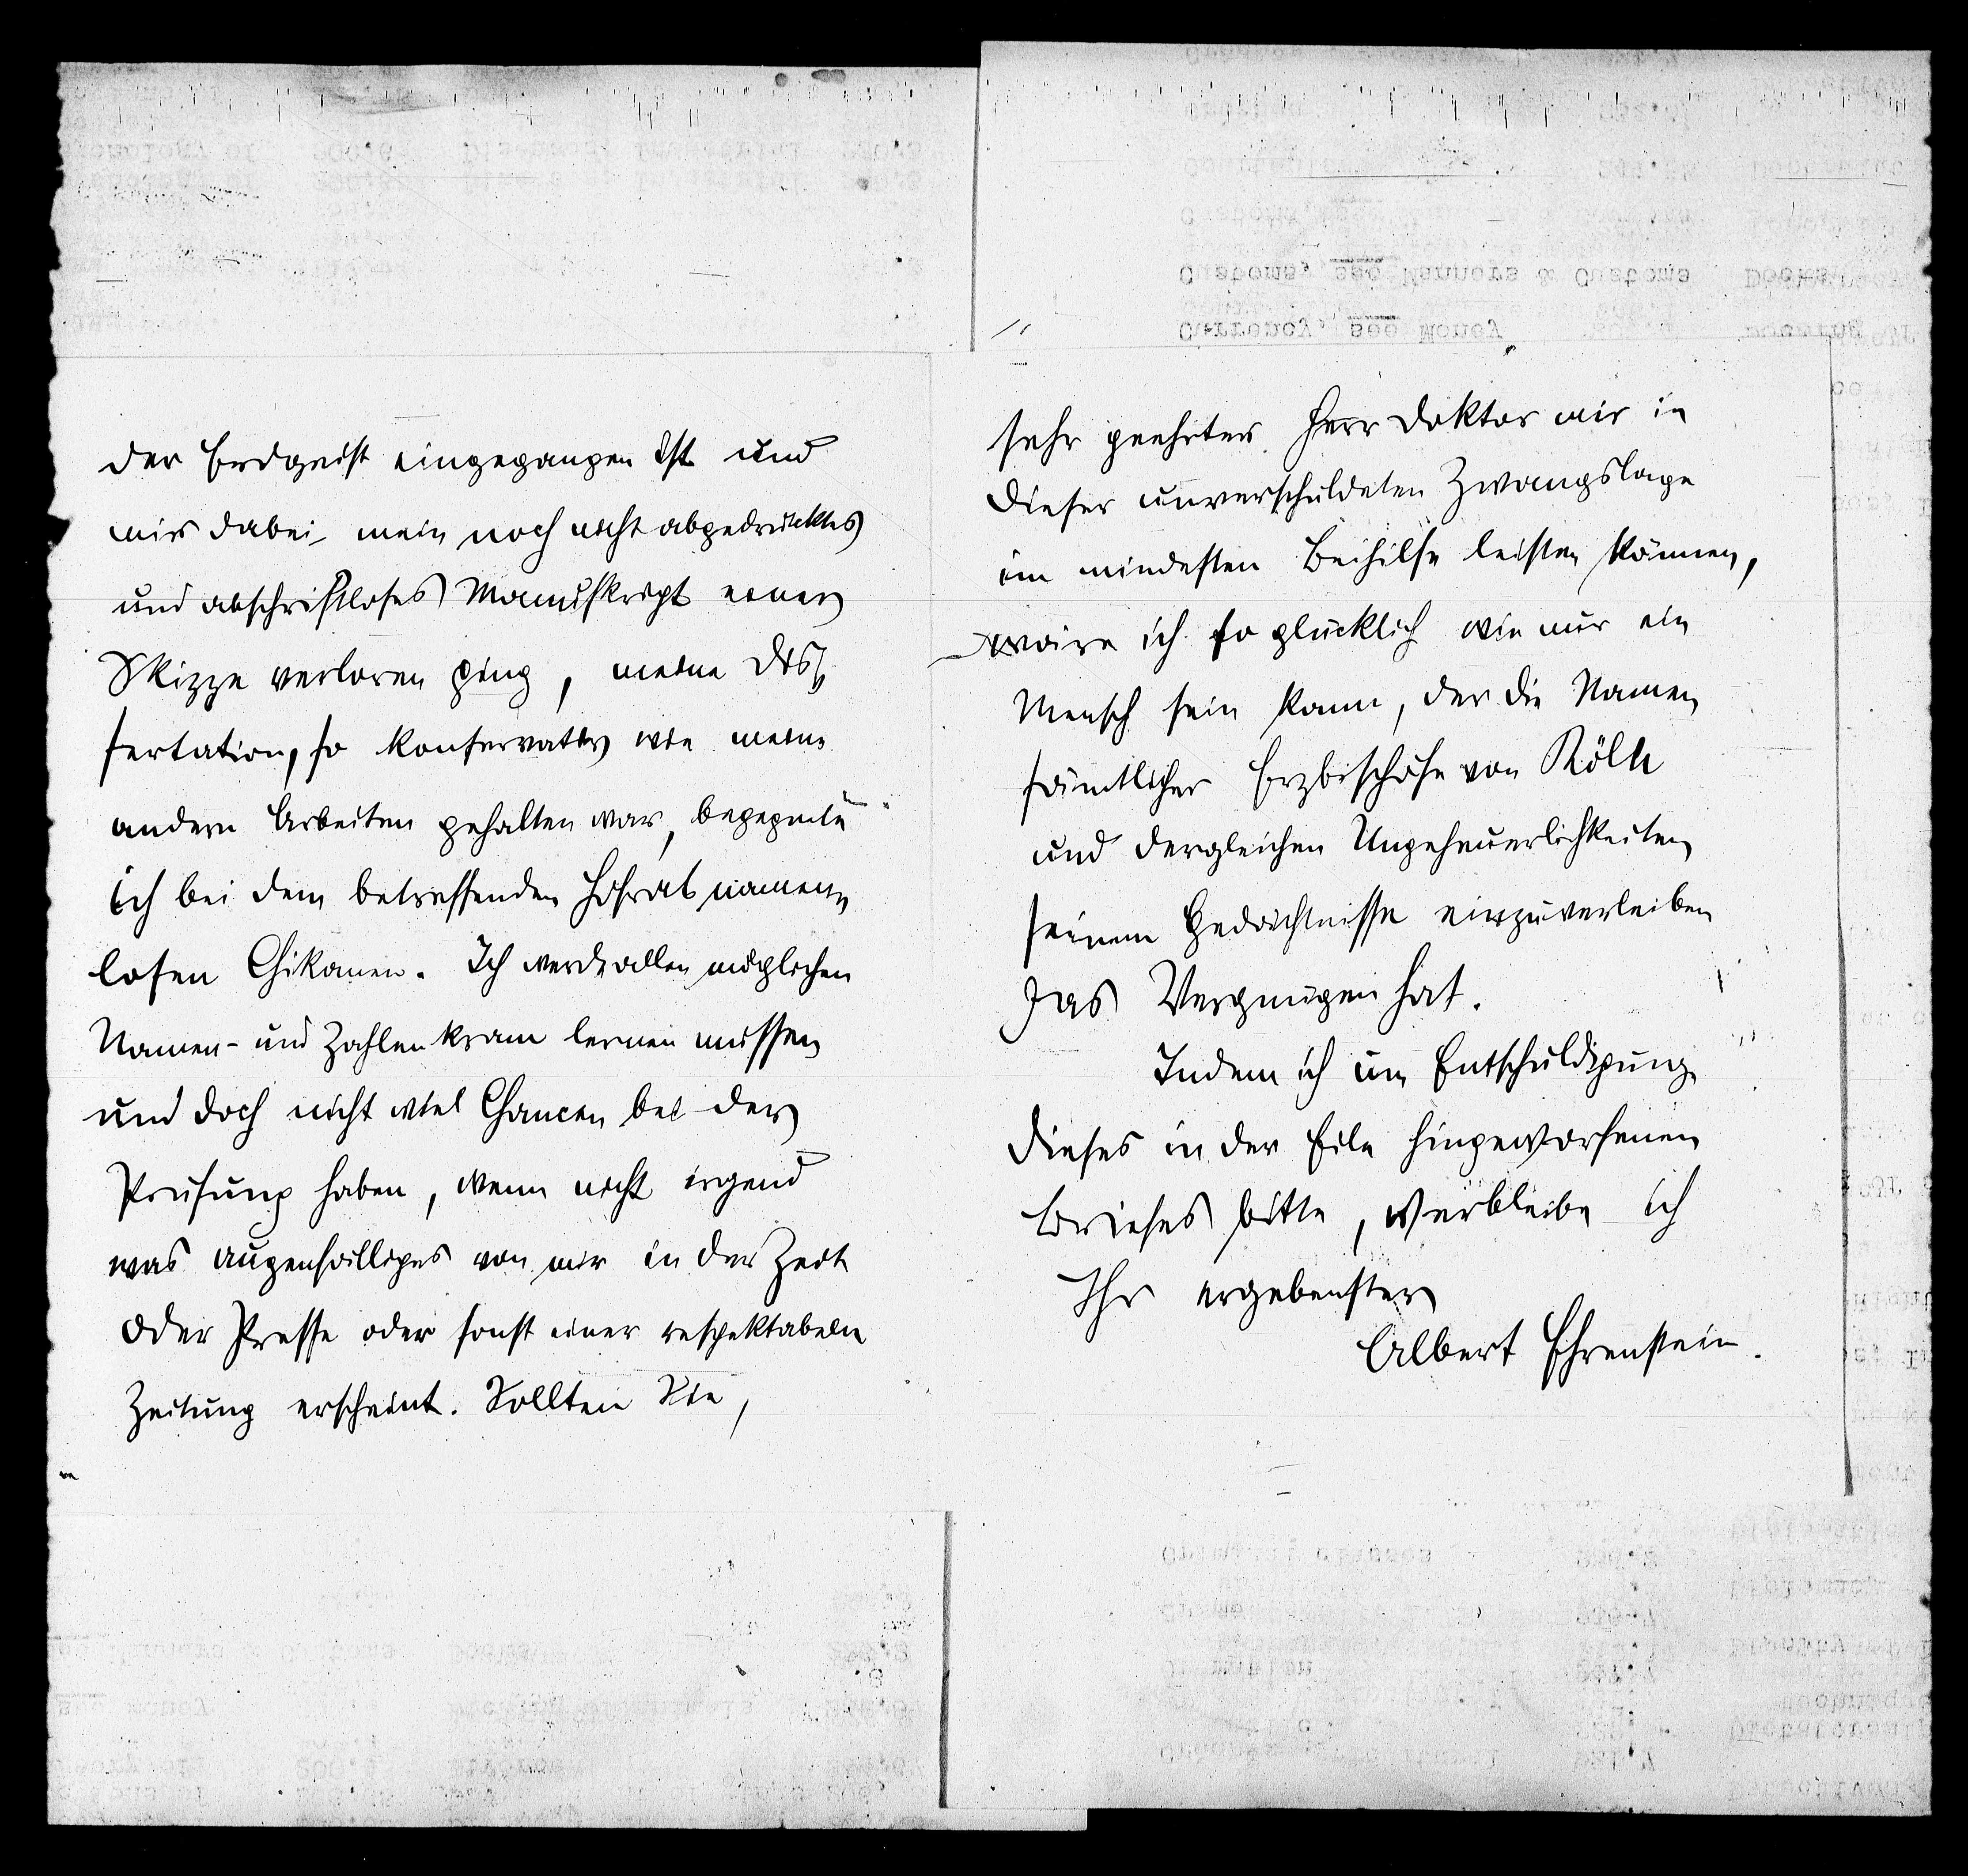 der Erdgeist eingegangen ist und
mir dabei mein noch nicht abgedrucktes
und abschriftloses Manuskript einer
Skizze verloren ging, meine Dis-
sertation, so konservativ wie meine
andern Arbeiten gehalten war, begegnete
ich bei dem betreffenden Hofrat namen-
losen Chikanen. Ich werde allen möglichen
Namen- und Zahlenkram lernen müssen
und doch nicht viel Chancen bei der
Prüfung haben, wenn nicht irgend
was augenfälliges von mir in der Zeit
oder Presse oder sonst einer respektabeln
Zeitung erscheint. Sollten Sie,
sehr geehrter Herr Doktor mir in
dieser unverschuldeten Zwangslage
im mindesten Beihilfe leisten können,
wäre ich so glücklich wie nur ein
Mensch sein kann, der die Namen
sämtlicher Erzbischöfe von Köln
und dergleichen Ungeheuerlichkeiten
seinem Gedächtnisse einzuverleiben
das Vergnügen hat.
Indem ich um Entschuldigung
dieses in der Eile hingeworfenen
Briefes bitte, verbleibe ich
Ihr ergebenster
Albert Ehrenstein.
Customs, see Manners & Customs
Currency, see Money